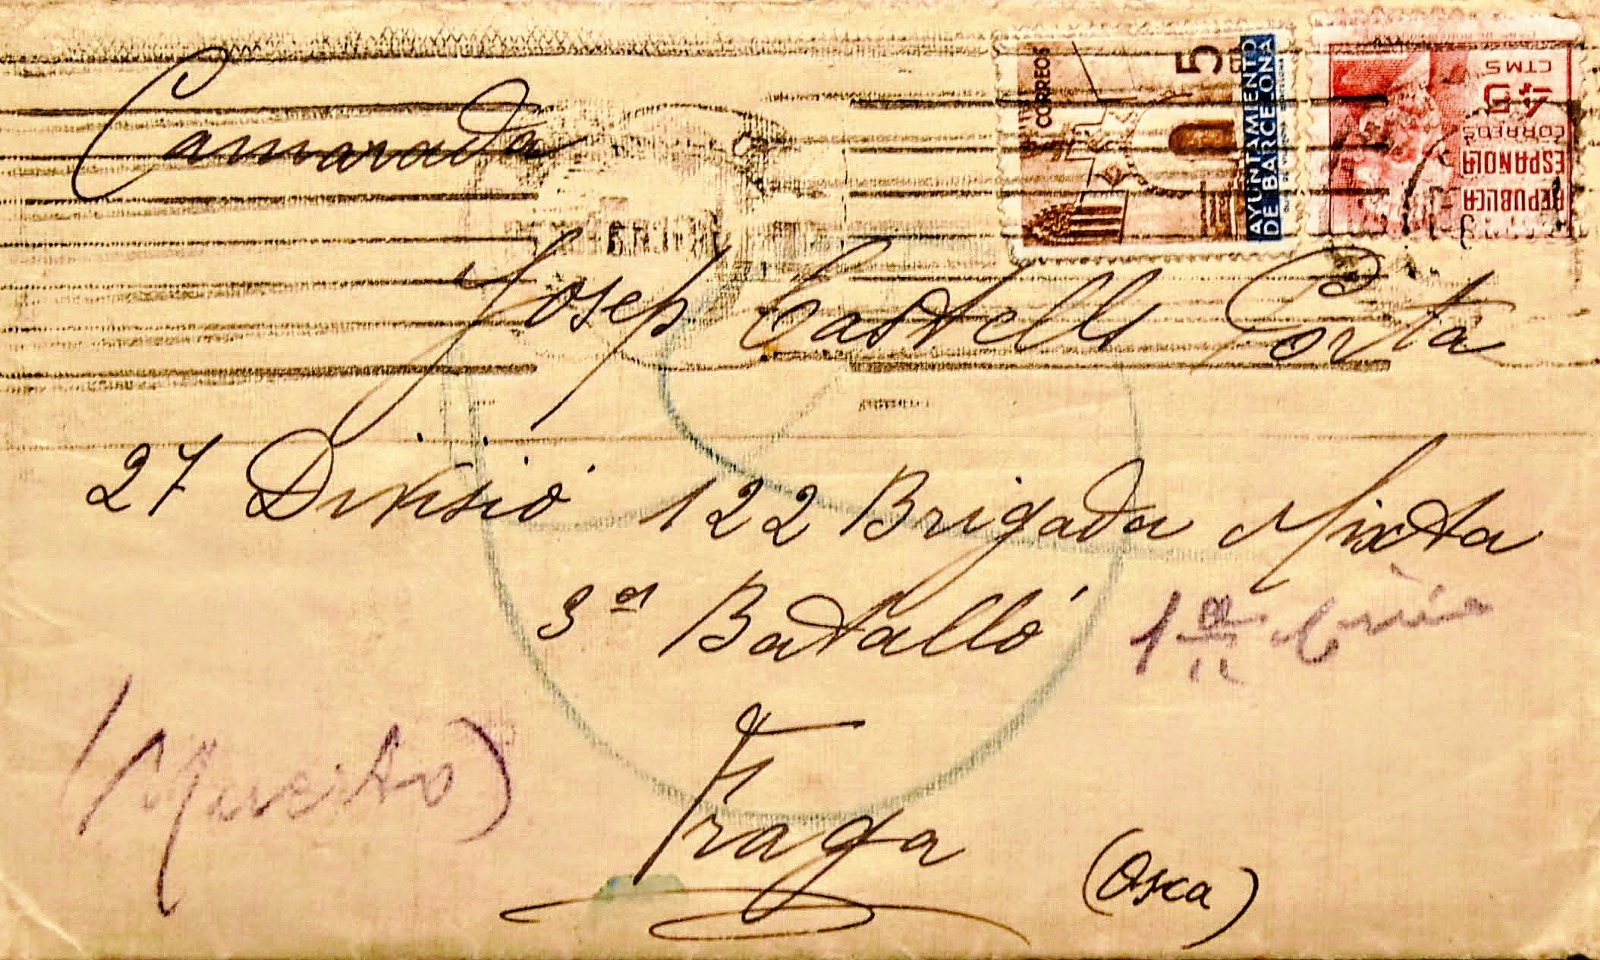 CORREOS
5
AYUNTAMIENTO
DE BARCELONA
45
CTMS
CORREOS
REPUBLICA
ESPAÑOLA
Camarada
Josep Castells Portà
27 Divisió 122 Brigada Mixta
3er Batalló
(Muerto)
Fraga
(Osca)